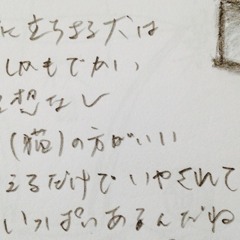 に立ちよる犬は
しかもでかい
想なし
(猫)の方がいい
えるだけでいやされて
いっぱいあるんだね